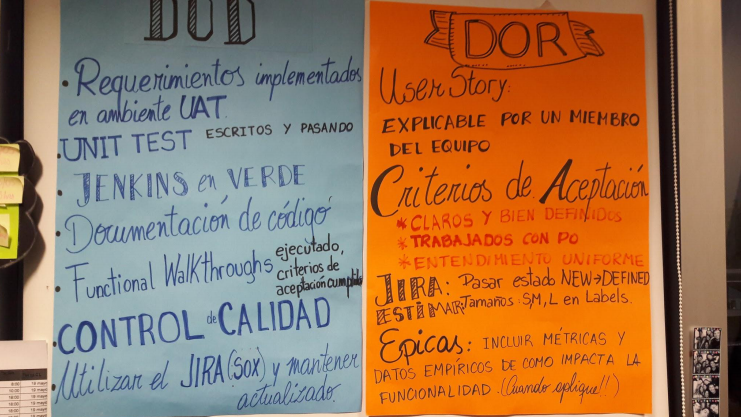 DOD
• Requerimientos implementados
en ambiente UAT.
• UNIT TEST ESCRITOS Y PASANDO
• JENKINS en VERDE
• Documentación de código
• Functional Walkthroughs ejecutado,
criterios de
aceptación cumplidos
• CONTROL de CALIDAD
• Utilizar el JIRA (SOX) y mantener
actualizado.
DOR
User Story:
EXPLICABLE POR UN MIEMBRO
DEL EQUIPO
Criterios de Aceptación
* CLAROS Y BIEN DEFINIDOS
* TRABAJADOS CON PO
* ENTENDIMIENTO UNIFORME
JIRA: Pasar estado NEW→DEFINED
ESTIMAR Tamaños: S,M,L en Labels.
Epicas: INCLUIR MÉTRICAS Y
DATOS EMPÍRICOS DE COMO IMPACTA LA
FUNCIONALIDAD. (Cuando aplique!!)